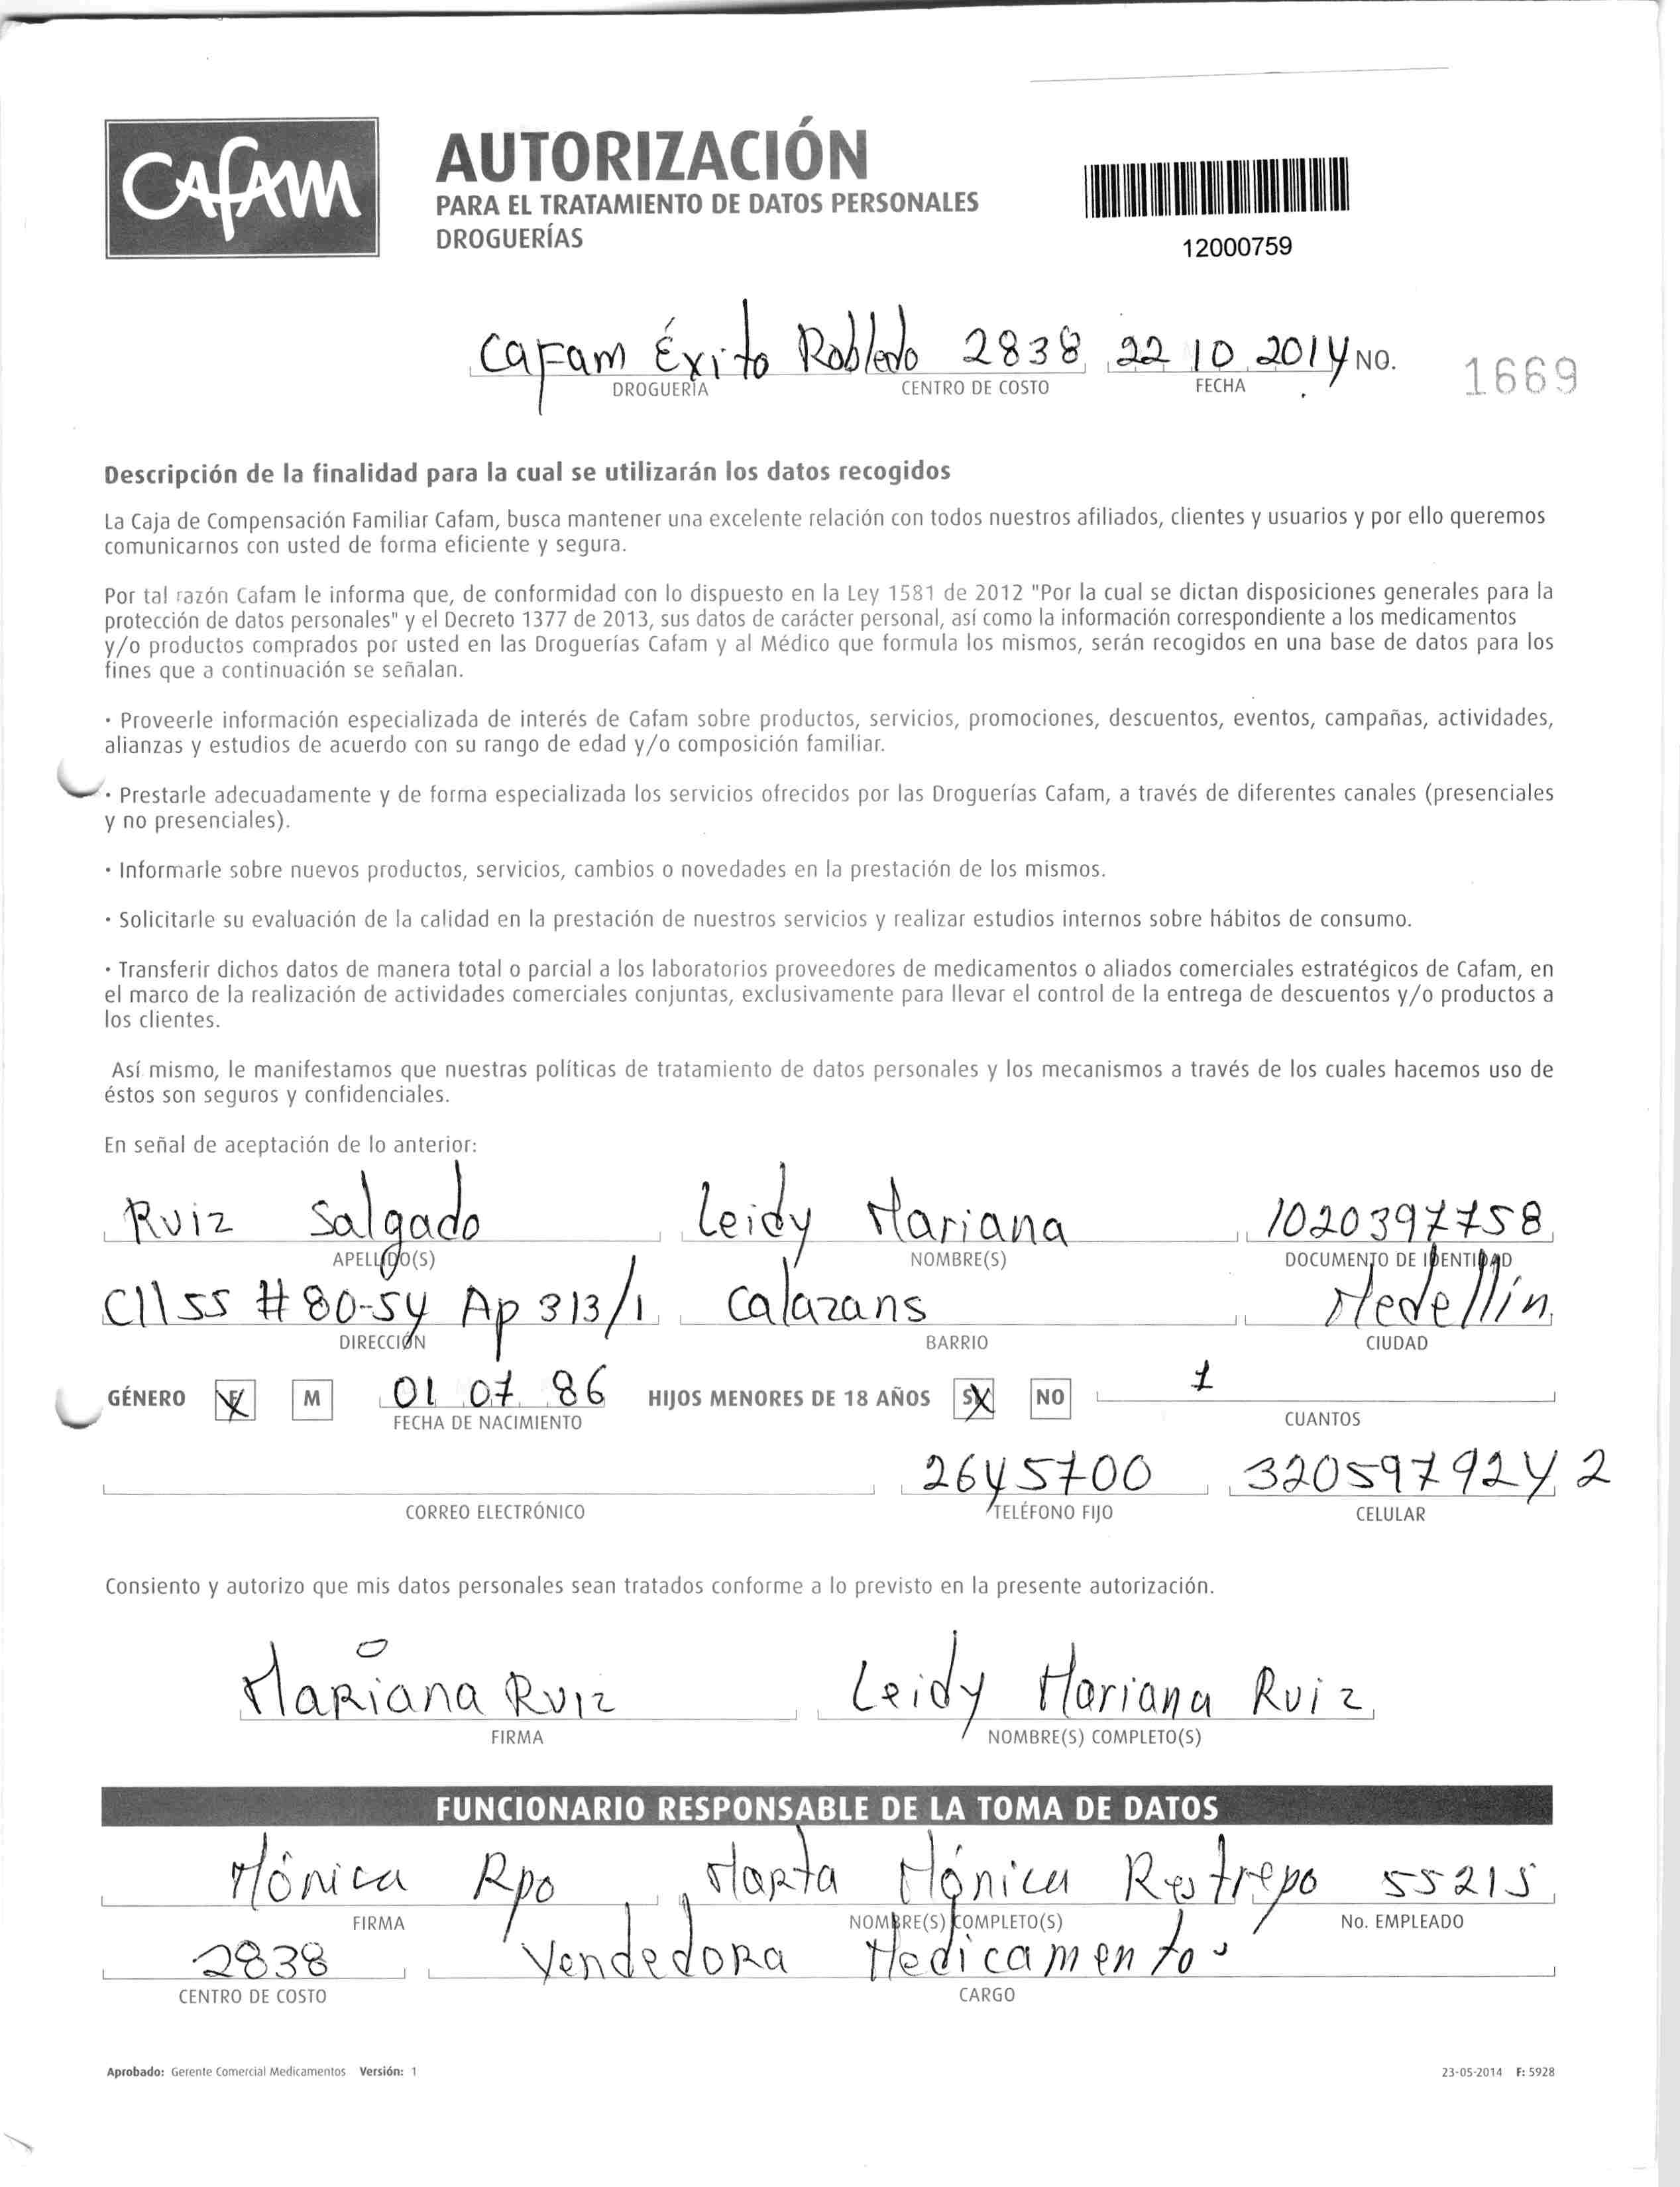 Cafam
AUTORIZACIÓN
PARA EL TRATAMIENTO DE DATOS PERSONALES
DROGUERÍAS
12000759
Cafam Éxito Robledo 2838 22 10 2014 NO. 1669
DROGUERÍA CENTRO DE COSTO FECHA
Descripción de la finalidad para la cual se utilizarán los datos recogidos
La Caja de Compensación Familiar Cafam, busca mantener una excelente relación con todos nuestros afiliados, clientes y usuarios y por ello queremos
comunicarnos con usted de forma eficiente y segura.
Por tal razón Cafam le informa que, de conformidad con lo dispuesto en la Ley 1581 de 2012 "Por la cual se dictan disposiciones generales para la
protección de datos personales" y el Decreto 1377 de 2013, sus datos de carácter personal, así como la información correspondiente a los medicamentos
y/o productos comprados por usted en las Droguerías Cafam y al Médico que formula los mismos, serán recogidos en una base de datos para los
fines que a continuación se señalan.
· Proveerle información especializada de interés de Cafam sobre productos, servicios, promociones, descuentos, eventos, campañas, actividades,
alianzas y estudios de acuerdo con su rango de edad y/o composición familiar.
· Prestarle adecuadamente y de forma especializada los servicios ofrecidos por las Droguerías Cafam, a través de diferentes canales (presenciales
y no presenciales).
· Informarle sobre nuevos productos, servicios, cambios o novedades en la prestación de los mismos.
· Solicitarle su evaluación de la calidad en la prestación de nuestros servicios y realizar estudios internos sobre hábitos de consumo.
· Transferir dichos datos de manera total o parcial a los laboratorios proveedores de medicamentos o aliados comerciales estratégicos de Cafam, en
el marco de la realización de actividades comerciales conjuntas, exclusivamente para llevar el control de la entrega de descuentos y/o productos a
los clientes.
Así mismo, le manifestamos que nuestras políticas de tratamiento de datos personales y los mecanismos a través de los cuales hacemos uso de
éstos son seguros y confidenciales.
En señal de aceptación de lo anterior:
Ruiz Salgado Leidy Mariana 1020397758
APELLIDO(S) NOMBRE(S) DOCUMENTO DE IDENTIDAD
Cll 55 # 80-54 Ap 313/1 Calazans Medellín
DIRECCIÓN BARRIO CIUDAD
GÉNERO F X M 01 07 86 HIJOS MENORES DE 18 AÑOS SI X NO 1
FECHA DE NACIMIENTO CUANTOS
2645700 3205979242
CORREO ELECTRÓNICO TELÉFONO FIJO CELULAR
Consiento y autorizo que mis datos personales sean tratados conforme a lo previsto en la presente autorización.
Mariana Ruiz Leidy Mariana Ruiz
FIRMA NOMBRE(S) COMPLETO(S)
FUNCIONARIO RESPONSABLE DE LA TOMA DE DATOS
Mónica Rpo Marta Mónica Restrepo 55215
FIRMA NOMBRE(S) COMPLETO(S) No. EMPLEADO
2838 Vendedora Medicamentos
CENTRO DE COSTO CARGO
Aprobado: Gerente Comercial Medicamentos Versión: 1 23-05-2014 F: 5928